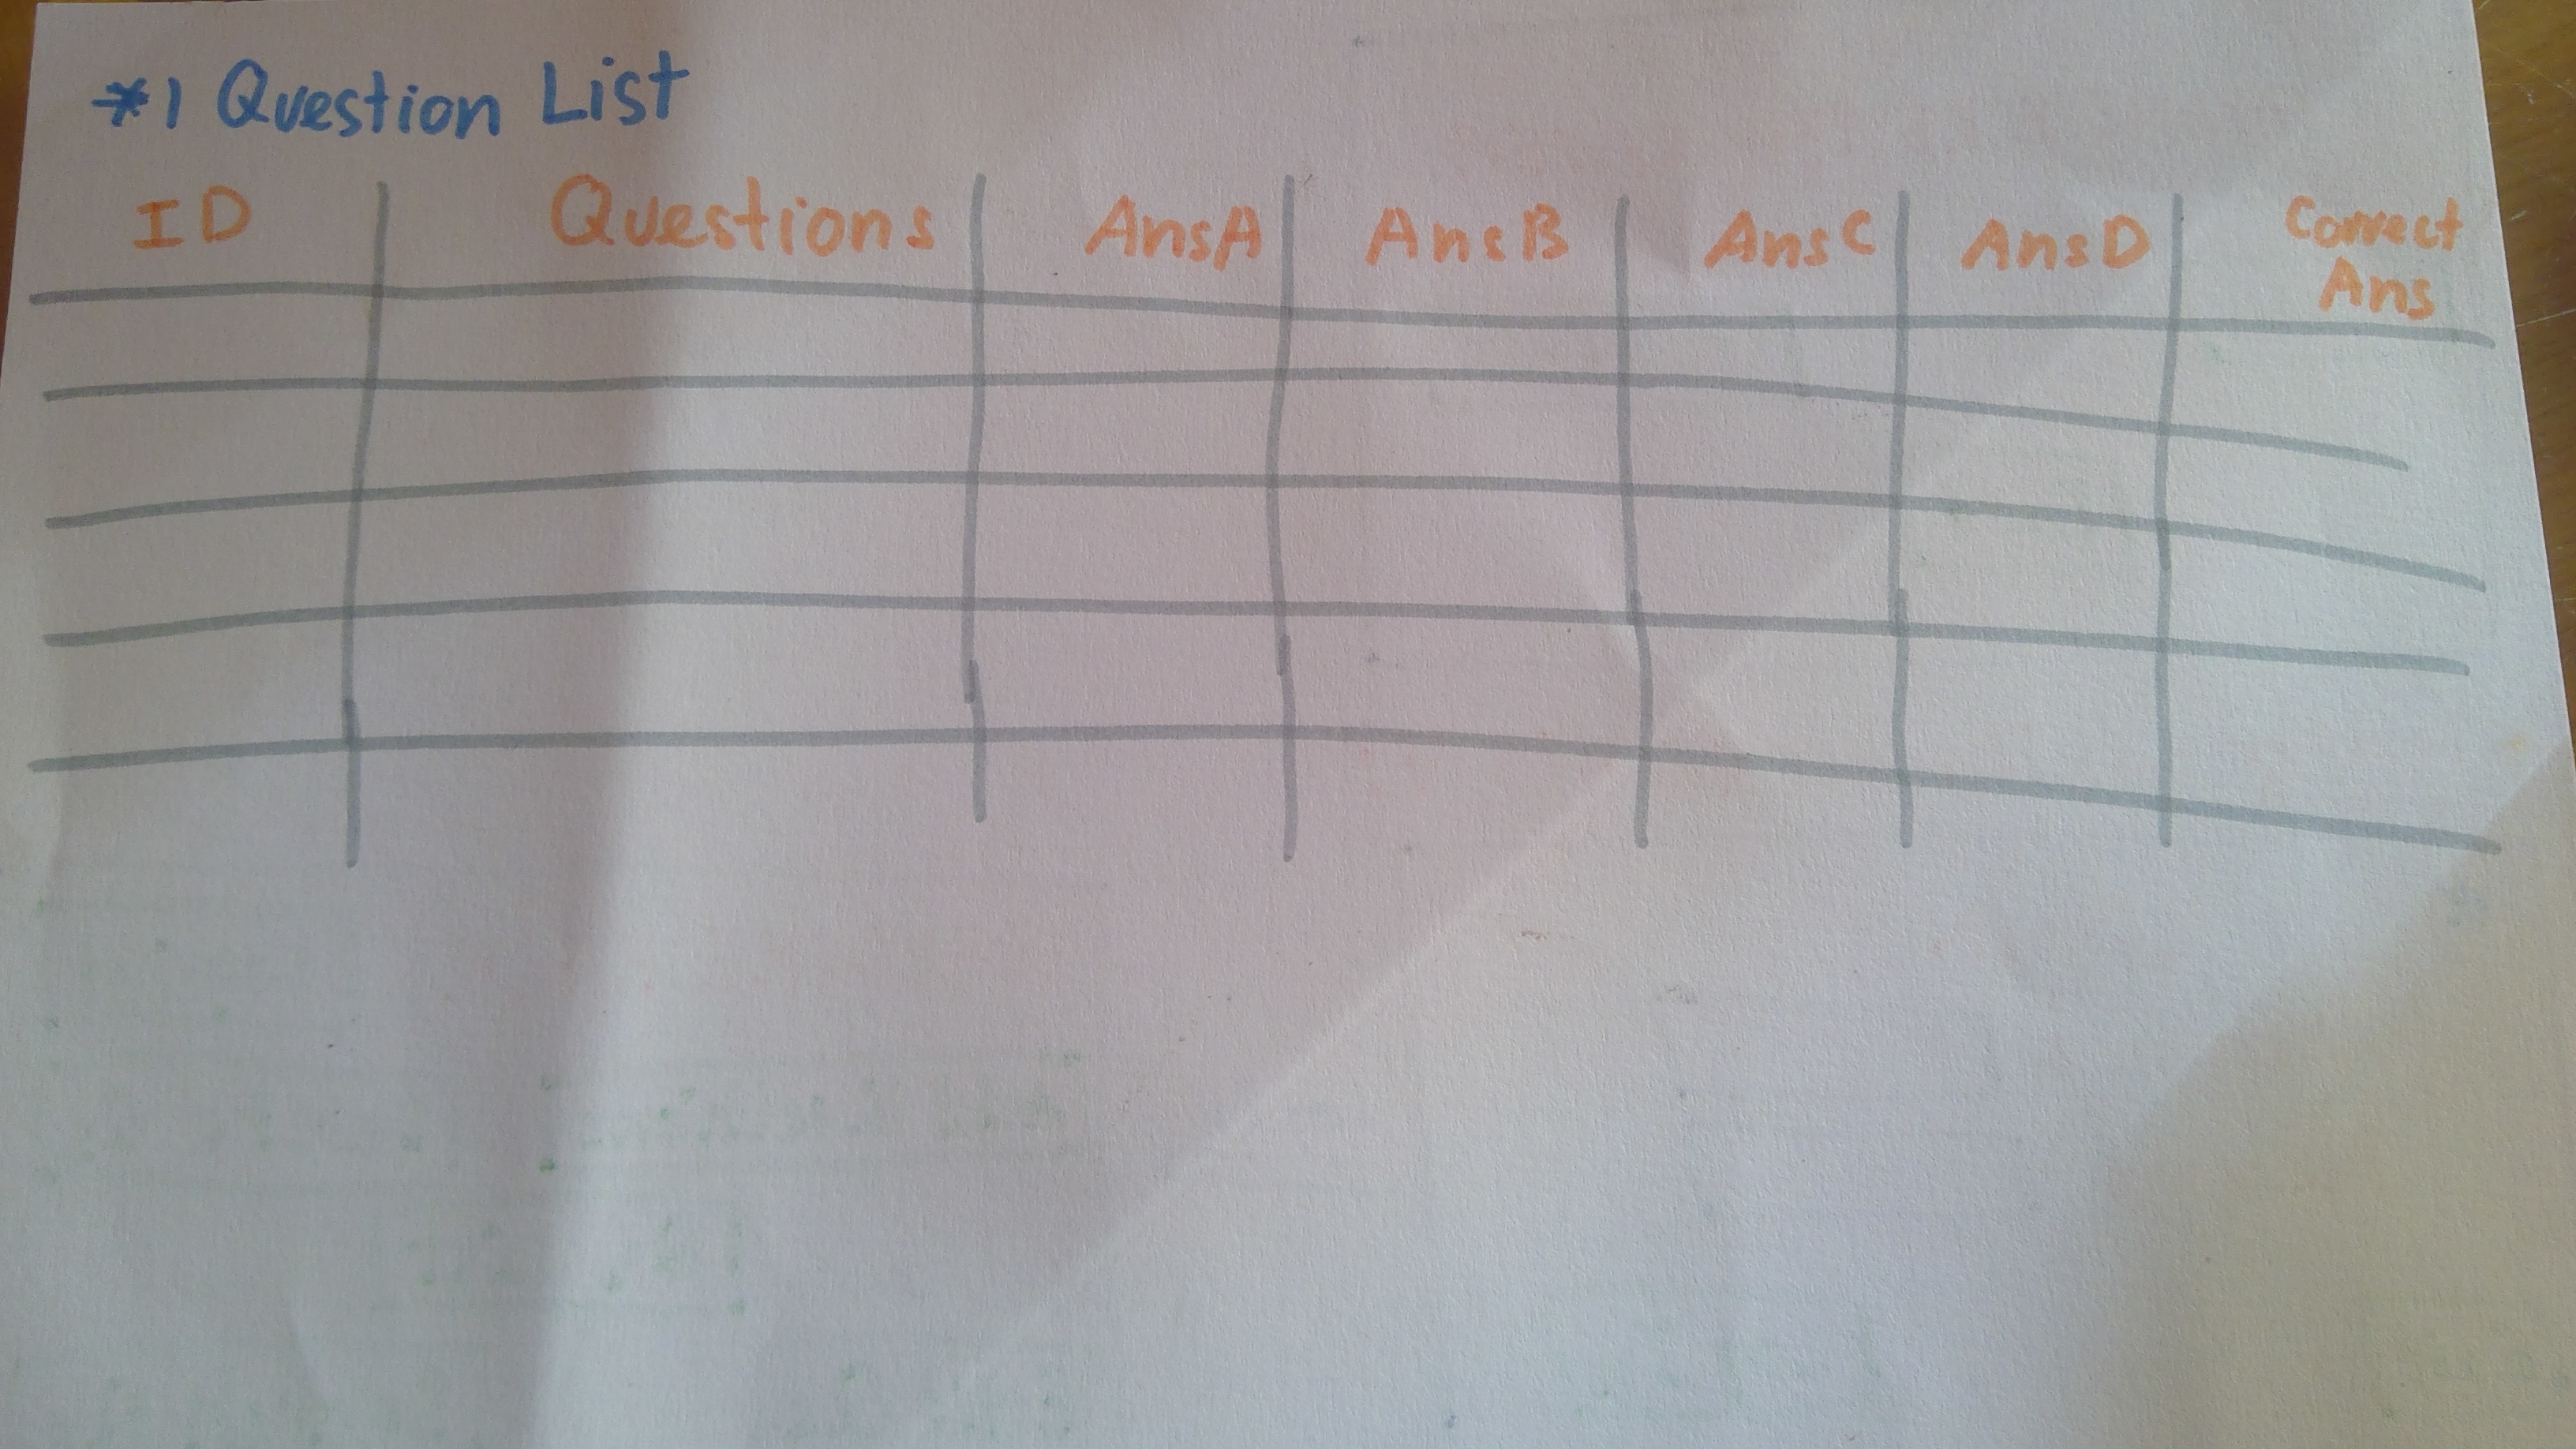 *1 Question List
ID Questions AnsA AnsB AnsC AnsD Correct Ans